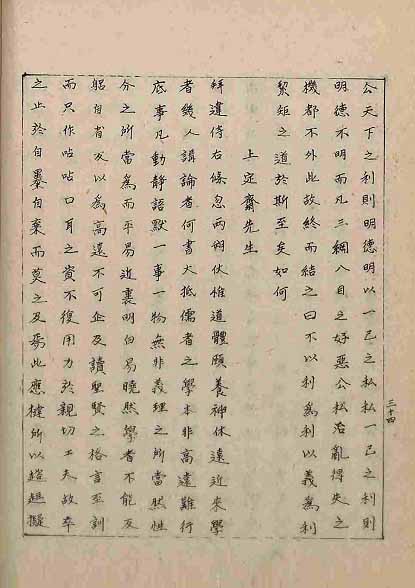 公天下之利則明德明以一己之私私一己之利則
明德不明而凡三綱八目之好惡公私治亂得失之
機都不外此故終而結之曰不以利爲利以義爲利
絜矩之道於斯至矣如何
上定齋先生
拜違侍右倏忽兩朔伏惟道體頤養神休遠近來學
者幾人講論者何書大抵儒者之學本非高遠難行
底事凡動靜語默一事一物無非義理之所當然性
分之所當爲而平易近裏明白易曉然學者不能反
躬自省反以爲高遠不可企及讀聖賢之格言至訓
而只作呫呫口耳之資不復用力於親切工夫故卒
之止於自暴自棄而莫之及焉此應楗所以趑趄擬
三十四